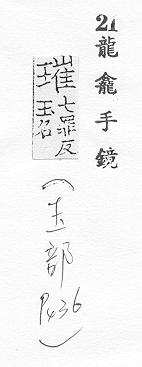 21龍龕手鏡
璀七罪反玉名
(玉部P.436)